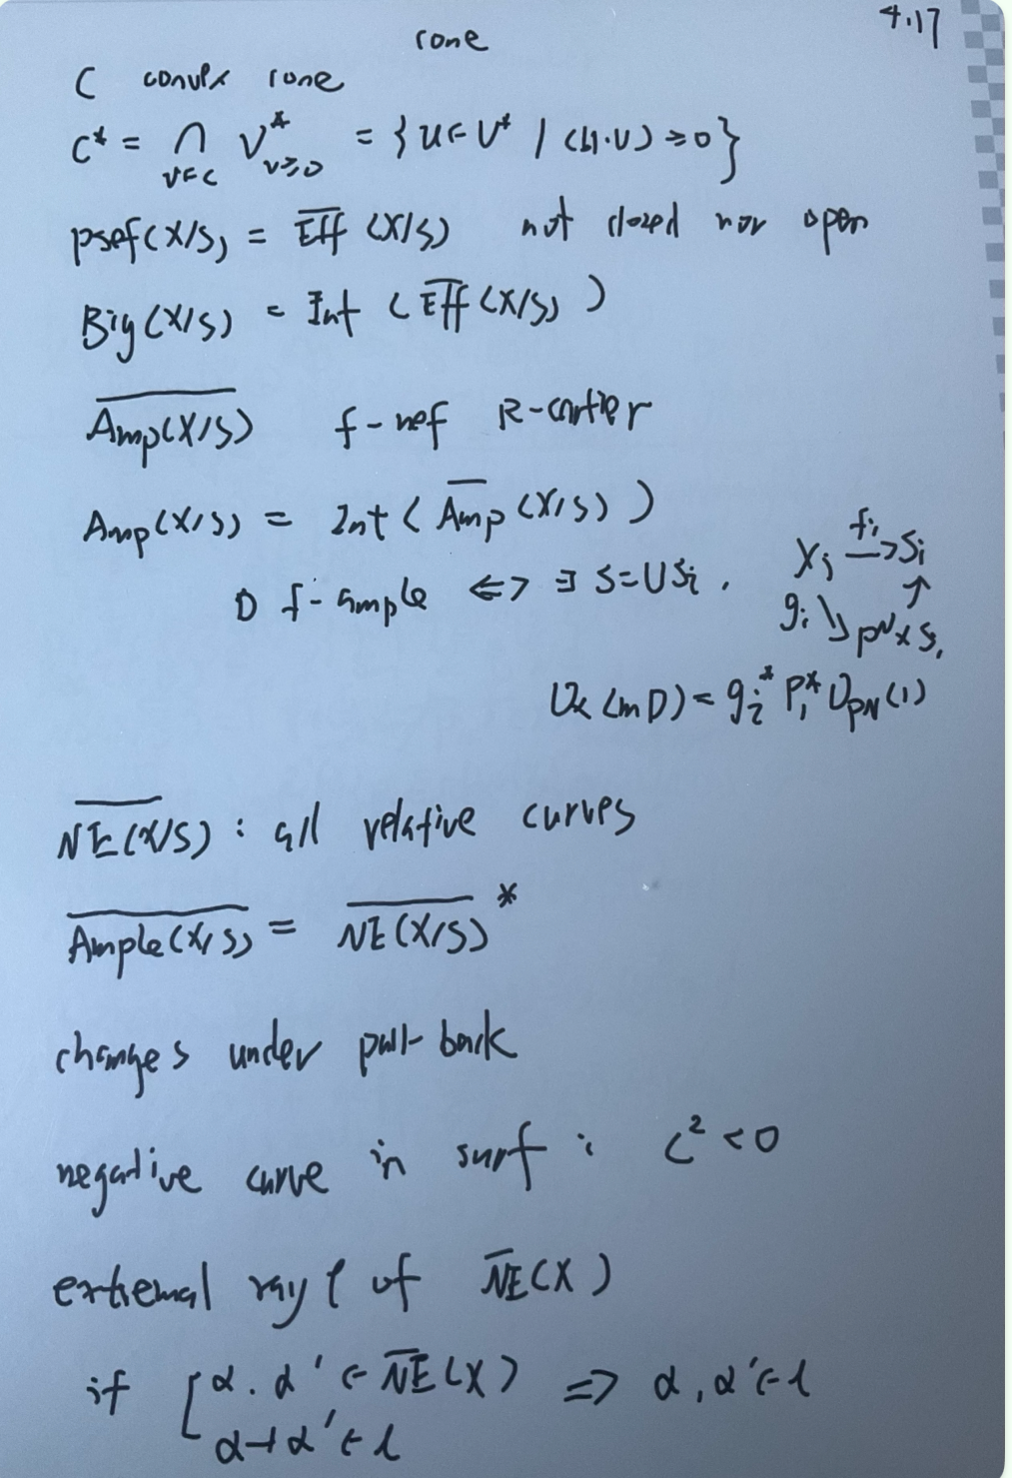 4.17
cone
C convex cone
C* = ∩_{v∈C} V*_{v≥0} = {u∈V* | (u·v) ≥ 0}
psef(X/S) = \overline{Eff}(X/S) not closed nor open
Big(X/S) = Int(\overline{Eff}(X/S))
\overline{Amp(X/S)} f-nef R-cartier
Amp(X/S) = Int(\overline{Amp}(X/S))
D f-ample ⟺ ∃ S=∪S_i . X_i \xrightarrow{f_i} S_i
g_i ↘ ↑
P^N × S_i
O_X(mD) = g_i^* P_1^* O_{P^N}(1)
\overline{NE(X/S)} : all relative curves
\overline{Ample(X/S)} = \overline{NE(X/S)}^*
changes under pull-back
negative curve in surf : C² < 0
extremal ray l of \overline{NE}(X)
if [ α, α' ∈ \overline{NE}(X) ⇒ α, α' ∈ l
α+α' ∈ l